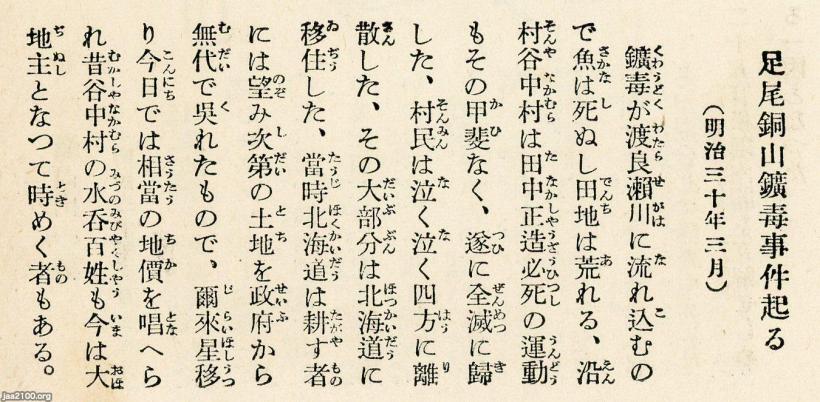 足尾銅山鑛毒事件起る
（明治三十年三月）
鑛毒が渡良瀬川に流れ込むの
で魚は死ぬし田地は荒れる、沿
村谷中村は田中正造必死の運動
もその甲斐なく、遂に全滅に歸
した、村民は泣く泣く四方に離
散した、その大部分は北海道に
移住した、當時北海道は耕す者
には望み次第の土地を政府から
無代で呉れたもので、爾來星移
り今日では相當の地價を唱へら
れ昔谷中村の水呑百姓も今は大
地主となつて時めく者もある。
jaa2100.org